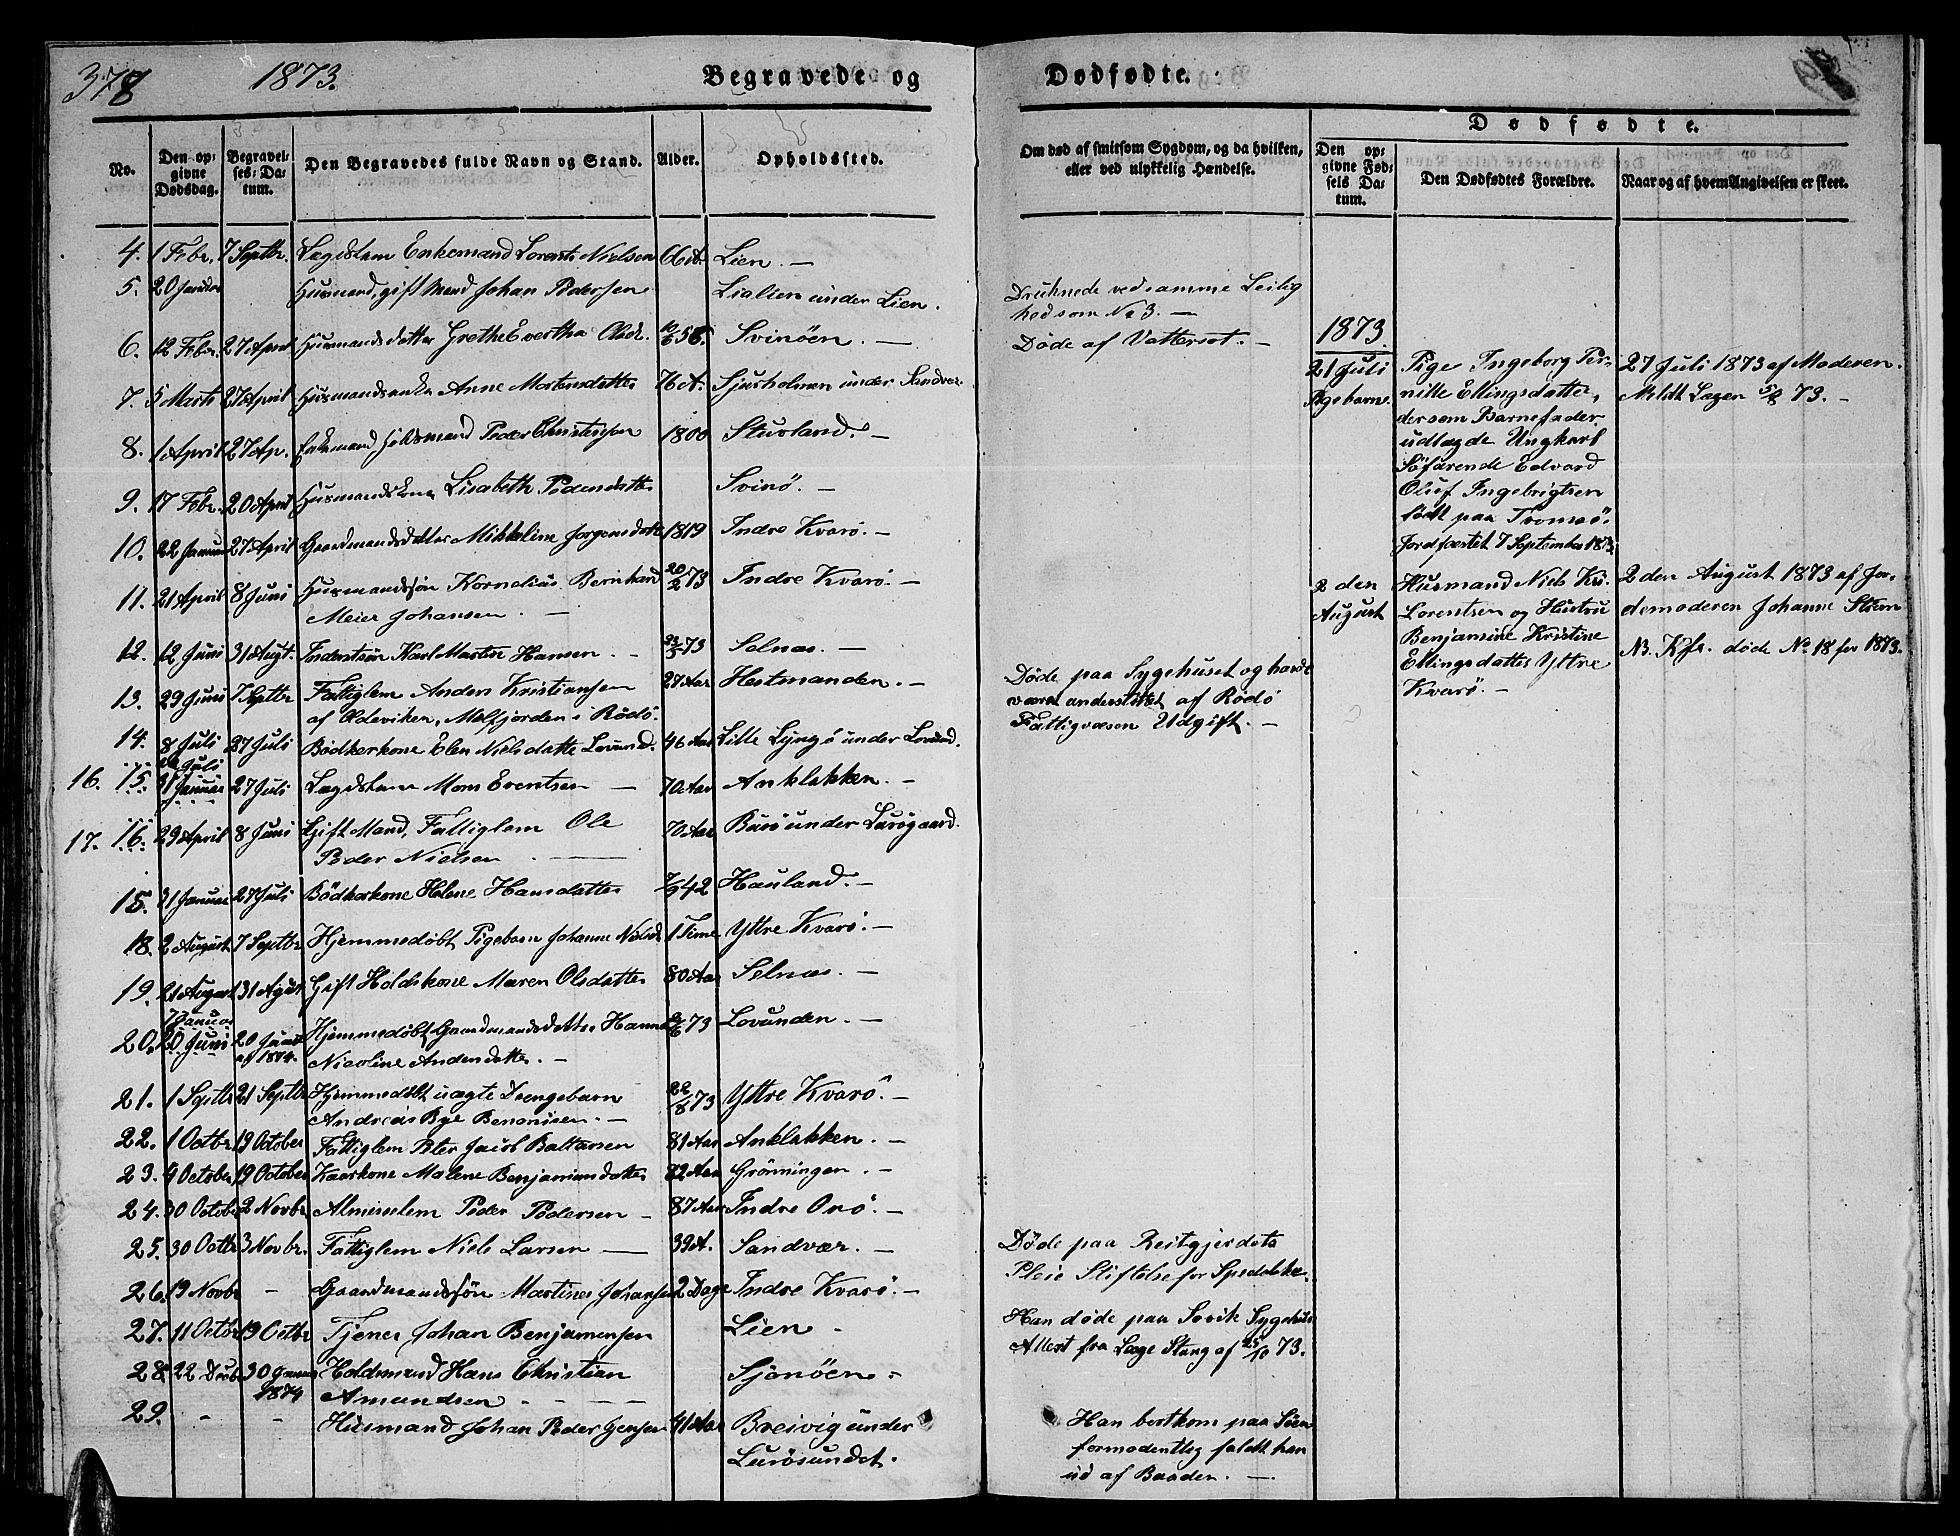 378 1873. Begravede og Dødfødte.
No.
Den op-
givne
Dødsdag.
Begravel-
ses-Da-
tum.
Den Begravedes fulde Navn og Stand.
Alder.
Opholdssted.
Om død af smitsom Sygdom, og da hvilken,
eller ved ulykkelig Hændelse.
Dødfødte.
Den op-
givne Fød-
sels Da-
tum.
Den Dødfødtes Forældre.
Naar og af hvem Angivelsen er skeet.
4. 1 Febr. 7 Septbr. Lægdslem Enkemand Lorents Nielsen 66 A. Lien. —
5. 20 Januar Husmand, gift Mand Johan Pedersen Lialien under Lien.
6. 12 Febr. 27 April Husmandsdatter Grethe Evertha Olsdr. 10/6 56. Svinöen. —
7. 5 Marts 27 April Husmandsenke Anne Mortensdatter 76 A. Sjusholmen under Sandvær.
8. 1 April 27 Ap. Enkemand Peder Christensen 1800 Stuvland. —
9. 17 Febr. 20 April Husmandskone Lisabeth Pedersdatter Svinö. —
10. 22 Januar 27 April Gaardmandsdatter Mikkeline Jorgensdatter 1819 Indre Kvarö. —
11. 21 April 8 Juni Husmandssön Kornelius Bernhard 20/2 73 Indre Kvarö. —
Meier Johansen. —
12. 12 Juni 31 Augt. Inderstsön Karl Martin Hansen. - 23/5 73 Selnæs. —
13. 29 Juni 7 Septbr Fattiglem Anders Kristiansen 27 Aar Hestmanden. —
af Oldeviken, Melfjorden i Rödö.
14. 8 Juli 27 Juli Bödkerkone Elen Nielsdatter Lovund. 46 Aar Lille Lyngö under Lovund.
Juli
16. 15. 31 Januar 27 Juli Lægdslem Mons Evertsen — 70 Aar Anklakken. —
17. 16. 29 April 8 Juni Gift Mand, Fattiglem Ole 70 Aar Burö under Lurögaard.
Peder Nielsen. —
15. 31 Januar 27 Juli Bödkerkone Helene Hansdatter 7/9 42 Hauland. —
18. 2 August 7 Septbr Hjemmedöbt Pigebarn Johanne Nielsd. 1 Time Yttre Kvarö. —
19. 21 August 31 August Gift Holdskone Maren Olsdatter 80 Aar Selnæs. —
7 Januar
20. 20 Juni 20 Januar Hjemmedöbt Gaardmandsdatter Hanna 73 Lovunden. —
af 1874. Nicoline Andersdatter. —
21. 1 Septbr 21 Septbr Hjemmedöbt uægte Drengebarn 22/8 73 Yttre Kvarö. —
Andreas Bye Benonisen. —
22. 1 Octbr. 19 October Fattiglem Peter Jacob Baltarsen 81 Aar Anklakken. —
23. 4 October 19 October Kaarkone Malene Benjaminsdatter 82 Aar Grönningen. —
24. 30 October 2 Novbr. Almisselem Peder Pedersen — 87 Aar Indre Onö. —
25. 30 Octbr 3 Novbr. Fattiglem Niels Larsen — 39 A. Sandvær. —
26. 19 Novbr - Gaardmandssön Martines Johansen 2 Dage Indre Kvarö. —
27. 11 Octbr 19 Octbr Tjener Johan Benjaminsen Lien -
28. 22 Decbr 30 Januar Holdsmand Hans Christian Sjonöen -
1874 Amundsen. - - -
29. - - Husmand Johan Peder Jensen 41 Aar Breivig under
Lurösundet.
Druknede ved samme Leilig
hed som No 3. —
Döde af Vattersot. —
Döde paa Sygehuset og havde
været understöttet af Rödö
Fattigvæsen Udgift. —
Döde paa Reitgjerdets
Pleie Stiftelse for Spedalske.
Han döde paa Sovik Sygehus
Attest fra Læge Stang af 25/10 73.
Han bortkom paa Söen
formodentlig faldt han
ud af Baaden. —
1873.
21 Juli
Pigebarn.
Pige Ingeborg Per-
nille Ellingsdatter,
der som Barnefader
udlagde Ungkarl
Söfarende Edvard
Oluf Ingebrigtsen
födt paa Tromsö.
Jordfæstet 7 September 1873
27 Juli 1873 af Moderen.
Meldt Lægen 5/8 73. —
2 den
August
Husmand Niels Kr.
Lorentsen og Hustru
Benjamine Kristine
Ellingsdatter Yttre
Kvarö. —
2 den August 1873 af Jor-
demoderen Johanne Strøm
NB. Kfr. döde No 18 for 1873.